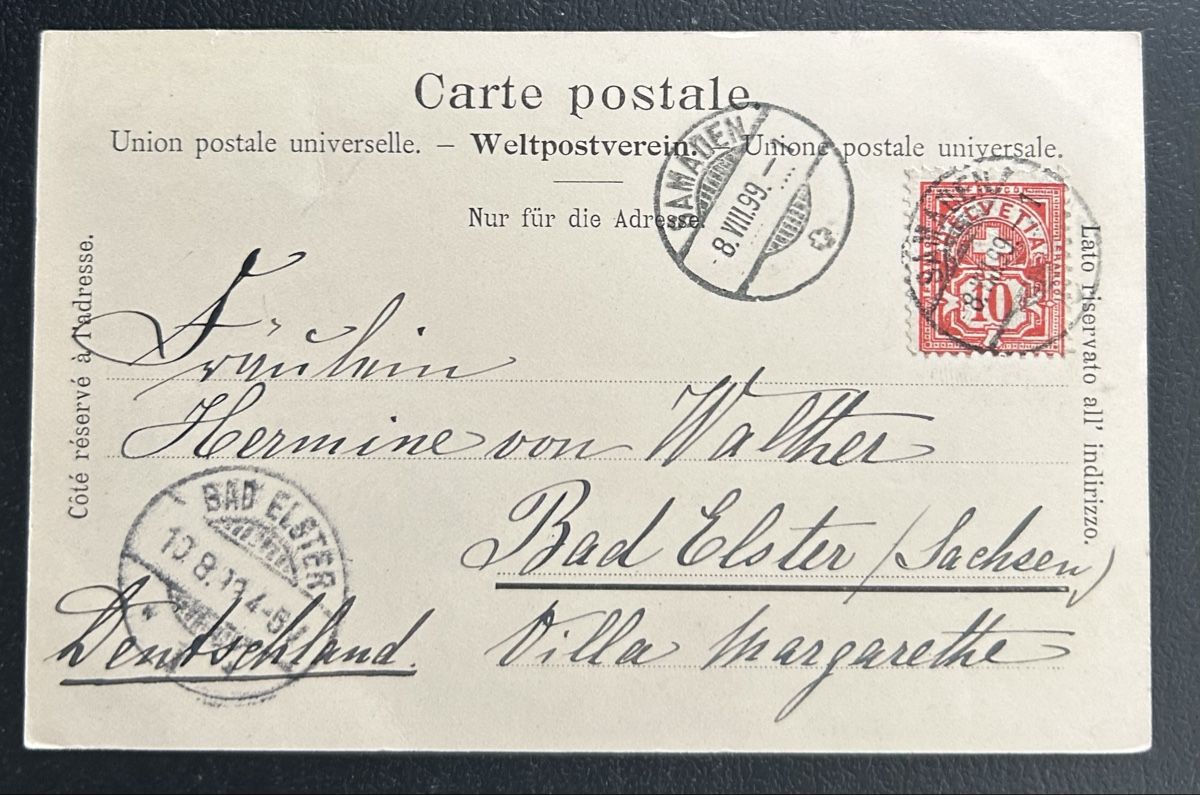 Carte postale.
Union postale universelle. — Weltpostverein. — Unione postale universale.
Nur für die Adresse.
Côté réservé à l'adresse.
Lato riservato all' indirizzo.
SAMADEN
8.VIII.99.—
SAMADEN
8.VIII.99
FRANCO
HELVETIA
10
Fräulein
Hermine von Walther
Bad Elster (Sachsen)
Villa Margarethe
Deutschland.
BAD ELSTER
10.8.99 4-5N